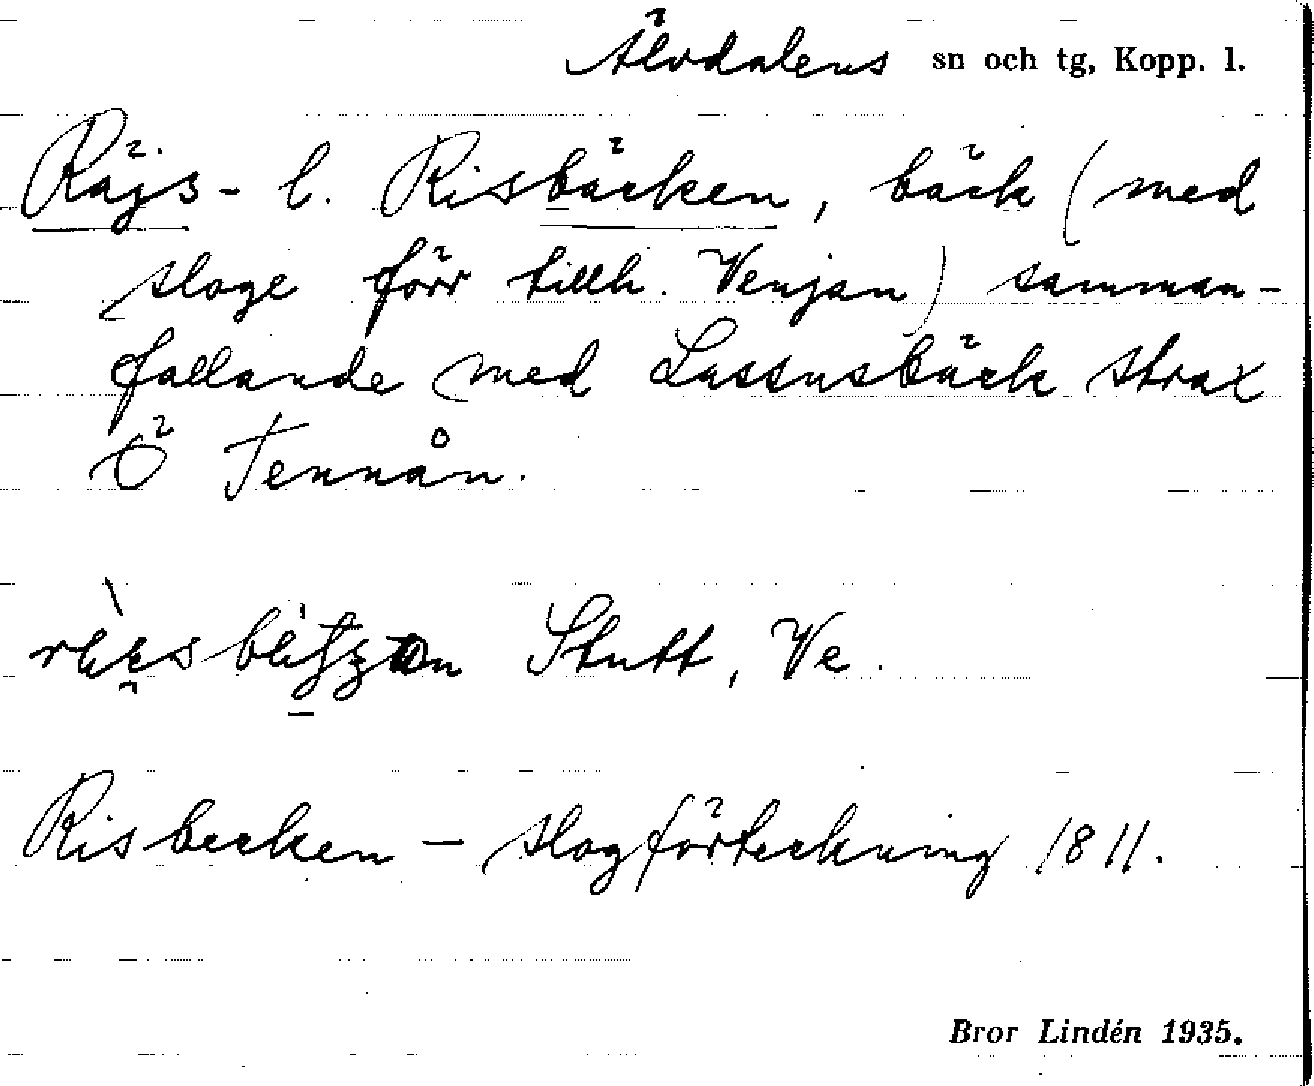 Älvdalens sn och tg, Kopp. l.
Räjs- l. Risbäcken, bäck (med
sloge förr tillh. Venjan) samman-
fallande med Lassusbäck strax
Ö Tennån.
Stutt, Ve.
Risbecken – slogförteckning 1811.
Bror Lindén 1935.